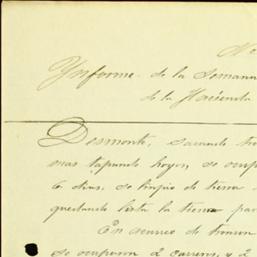 No
Ynforme de la Semana
de la Hacienda
Desmonte, sacando tro
mas tapando hoyos, se ocup
6 dias, se limpio de tierra
quedando lista la tierra par
En acarreo de
se ocuparon 2 carreros, y 2